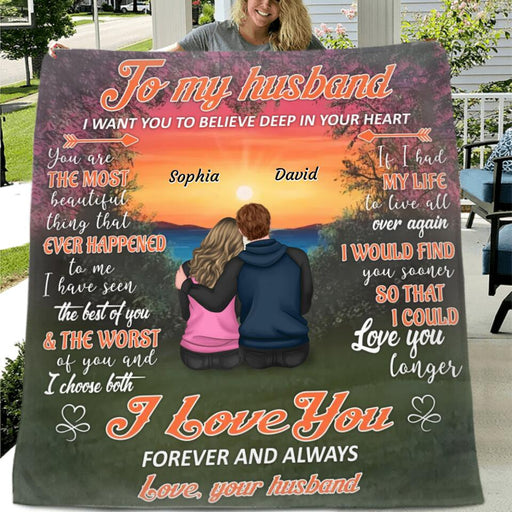 To my husband
I WANT YOU TO BELIEVE DEEP IN YOUR HEART
You are
THE MOST
beautiful
thing that
EVER HAPPENED
to me
I have seen
the best of you
& THE WORST
of you and
I choose both
Sophia
David
If I had
MY LIFE
to live all
over again
I WOULD FIND
you sooner
SO THAT
I COULD
Love you
longer
I Love You
FOREVER AND ALWAYS
Love, your husband